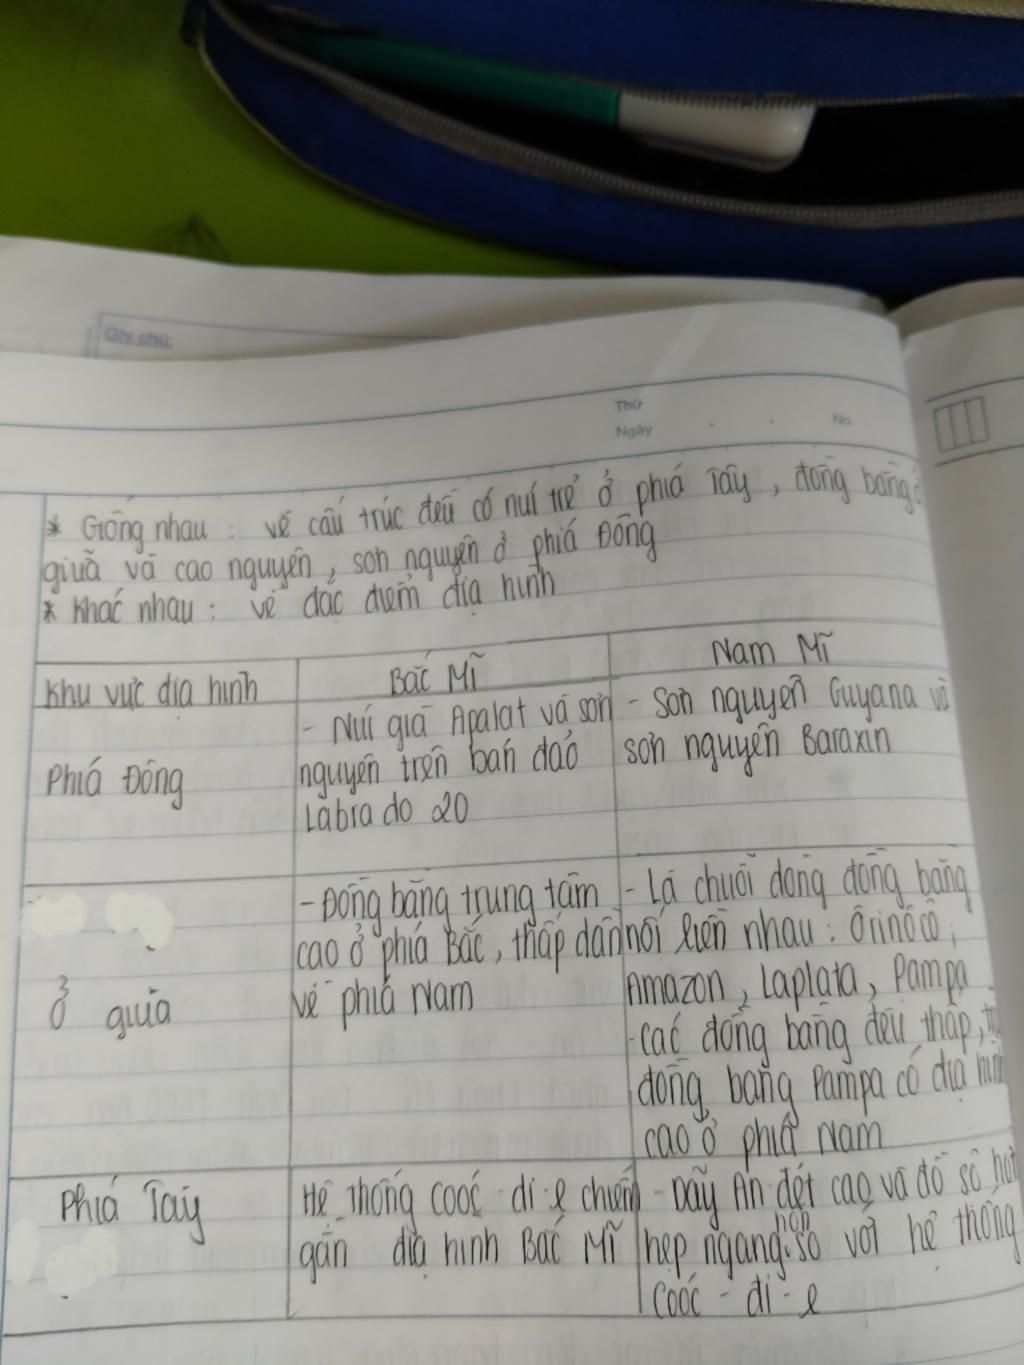 Ghi chú:
Thứ
Ngày
No.
* Giống nhau : về cấu trúc đều có núi trẻ ở phía Tây, đồng bằng ở
giữa và cao nguyên, sơn nguyên ở phía Đông
* Khác nhau : về đặc điểm địa hình
Khu vực địa hình
Bắc Mĩ
Nam Mĩ
Phía Đông
- Núi già Apalat và sơn
nguyên trên bán đảo
Labrado 20
- Sơn nguyên Guyana và
sơn nguyên Baraxin
Ở giữa
- Đồng bằng trung tâm
cao ở phía Bắc, thấp dần
về phía Nam
- Là chuỗi dòng đồng bằng
nối liền nhau : Ôrinôcô,
Amazon, Laplata, Pampa
- các đồng bằng đều thấp,
đồng bằng Pampa có địa hình
cao ở phía Nam
Phía Tây
Hệ thống Coóc - đi - e chiếm
gần địa hình Bắc Mĩ
- Dãy An-đét cao và đồ sộ
hẹp ngang hơn so với hệ thống
Coóc - đi - e